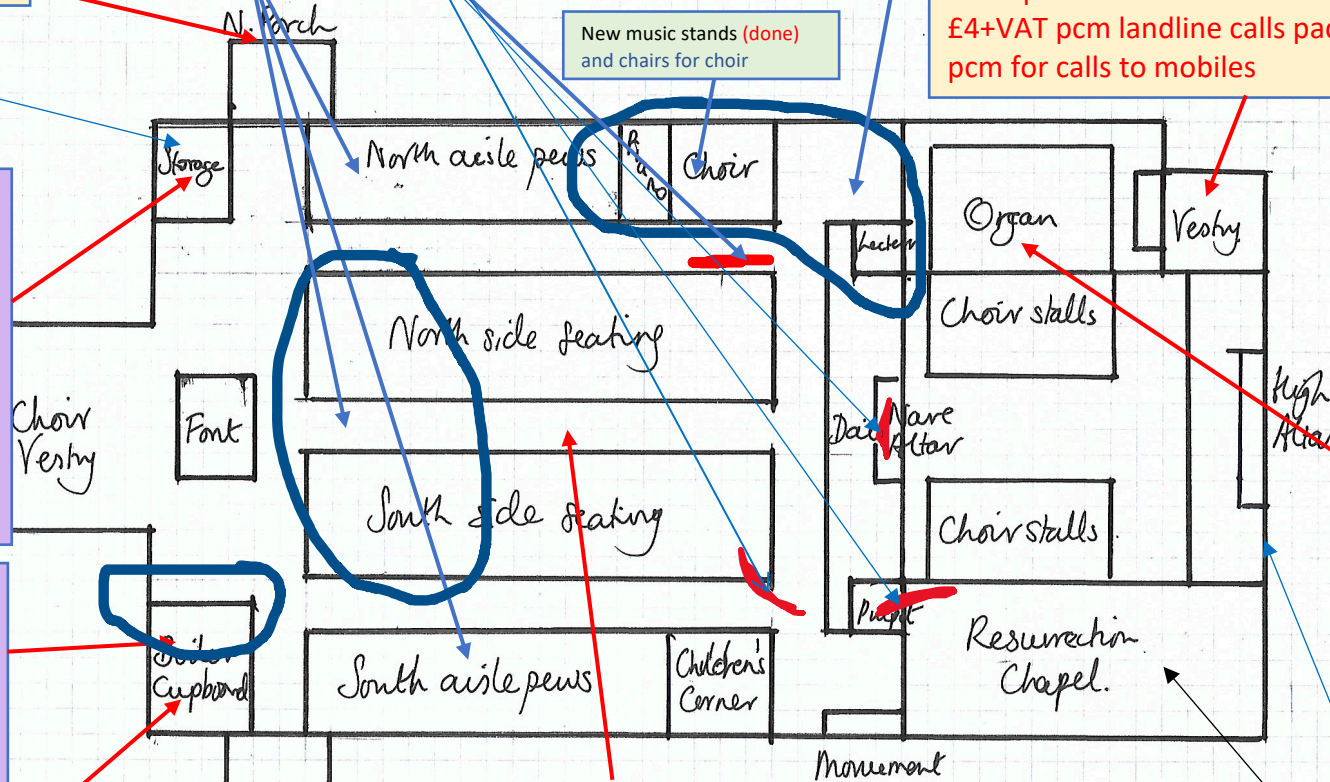 N. Porch
New music stands (done)
and chairs for choir
£4+VAT pcm landline calls pac
pcm for calls to mobiles
Storage
North aisle pews
Piano
Choir
Lectern
Organ
Vestry
North side seating
Choir stalls
Choir
Vestry
Font
Dais
Nave
Altar
High
Altar
South side seating
Choir stalls
Boiler
Cupboard
South aisle pews
Children's
Corner
Pulpit
Resurrection
Chapel.
Monument